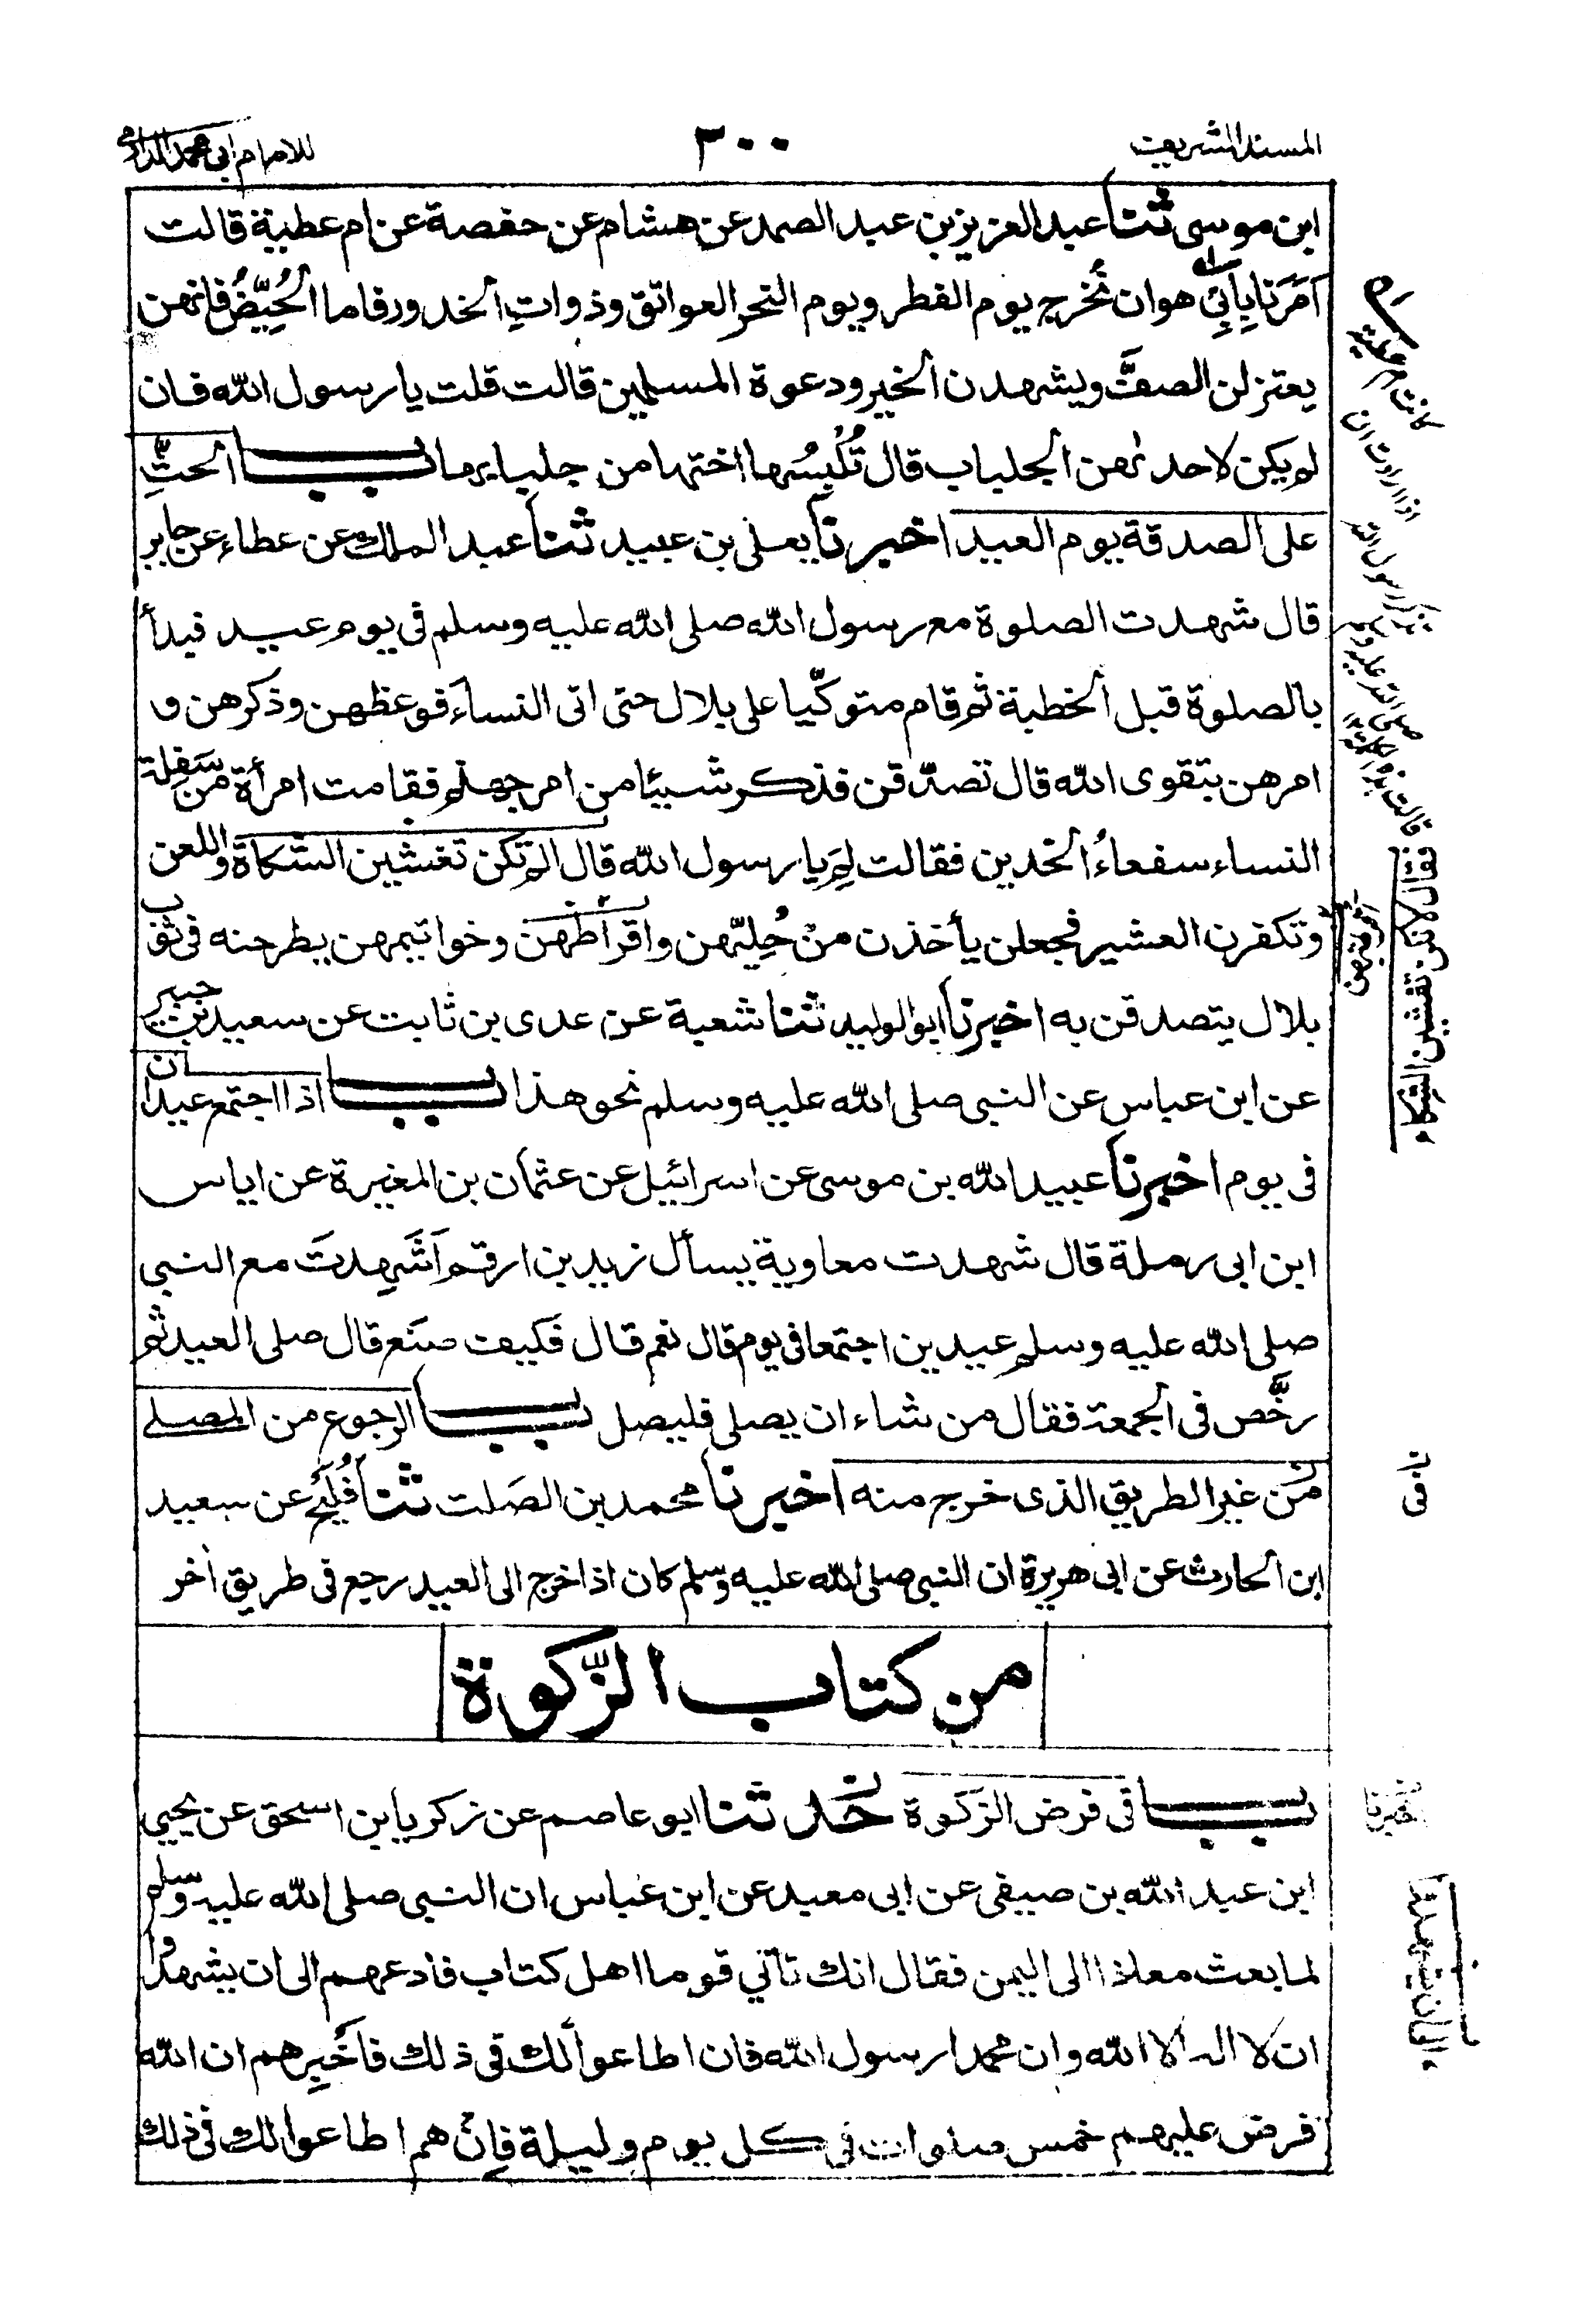 المسند الشريف
٣٠٠
للامام ابى محمد الدارمى
ابن موسى ثنا عبد العزيز بن عبد الصمد عن هشام عن حفصة عن ام عطية قالت
اَمَرَنا بِاَبِى هو ان نُخرج يوم الفطر ويوم النحر العواتق وذواتِ الخدور فاما الحُيَّضُ فانهن
يعتزلن الصفَّ ويشهدن الخير ودعوة المسلمين قالت قلت يا رسول الله فان
لم يكن لاحدٰهن الجلباب قال تُلْبِسُها اختها من جلبابها باب الحثِّ
على الصدقة يوم العيد اخبرنا يعلى بن عبيد ثنا عبد الملك عن عطاء عن جابر
قال شهدت الصلوة مع رسول الله صلى الله عليه وسلم فى يوم عيد فبدأ
بالصلوة قبل الخطبة ثم قام متوكّيا على بلال حتى اتى النساء فوعظهن وذكرهن و
امرهن بتقوى الله قال تصدّقن فذكر شيئا من امر جهنم فقامت امرأة من سَفِلة
النساء سفعاءُ الخدين فقالت لِمَ يا رسول الله قال الرتكن تغشين الشكاة واللعن
وتكفرن العشير فجعلن يأخذن من حُلِيّهن واقراطهن وخواتيمهن يطرحنه فى ثوب
بلال يتصدقن به اخبرنا ابو الوليد ثنا شعبة عن عدى بن ثابت عن سعيد بن جبير
عن ابن عباس عن النبى صلى الله عليه وسلم نحو هذا باب اذا اجتمع عيدان
فى يوم اخبرنا عبيد الله بن موسى عن اسرائيل عن عثمان بن المغيرة عن اياس
ابن ابى رملة قال شهدت معاوية يسأل زيد بن ارقم اَشَهِدتَ مع النبى
صلى الله عليه وسلم عيدين اجتمعا فى يوم قال نعم قال فكيف صنع قال صلى العيد ثم
رخَّص فى الجمعة فقال من شاء ان يصلى فليصل باب الرجوع من المصلى
من غير الطريق الذى خرج منه اخبرنا محمد بن الصَلت ثنا فُلَيْح عن سعيد
ابن الحارث عن ابى هريرة ان النبى صلى الله عليه وسلم كان اذا خرج الى العيد رجع فى طريق اخر
من كتاب الزّكوة
باب فى فرض الزكوة حدثنا ابو عاصم عن زكريا بن اسحق عن يحيى
ابن عبد الله بن صيفى عن ابى معبد عن ابن عباس ان النبى صلى الله عليه وسلم
لما بعث معاذا الى اليمن فقال انك تأتي قوما اهل كتاب فادعهم الى ان يشهدوا
ان لا اله الا الله وان محمدا رسول الله فان اطاعوا لك فى ذلك فأخبِرهم ان الله
فرض عليهم خمس صلوات فى كل يوم وليلة فاِنْ هم اطاعوا لك فى ذلك
كانت ام عطية
اذا ارادت ان
تذكر رسول الله
صلى الله عليه وسلم
فقال لانكن تفشين الشكاة
ن فى
اخبرنا